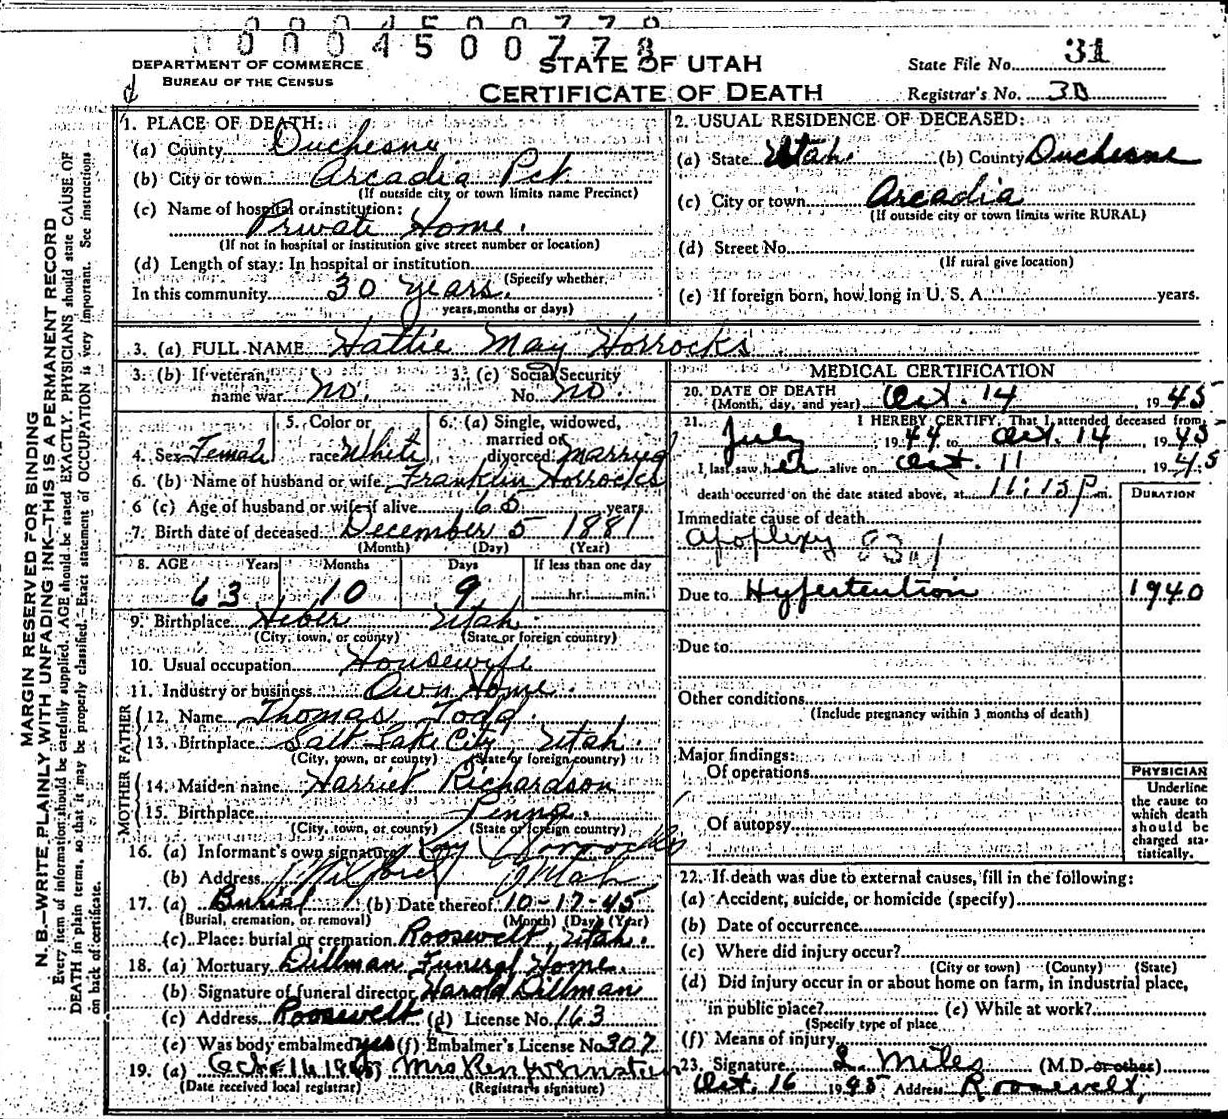 0004500778
DEPARTMENT OF COMMERCE
BUREAU OF THE CENSUS
STATE OF UTAH
CERTIFICATE OF DEATH
State File No. 31
Registrar's No. 30
MARGIN RESERVED FOR BINDING
N. B.—WRITE PLAINLY WITH UNFADING INK—THIS IS A PERMANENT RECORD
Every item of information should be carefully supplied. AGE should be stated EXACTLY. PHYSICIANS should state CAUSE OF
DEATH in plain terms, so that it may be properly classified. Exact statement of OCCUPATION is very important. See instructions
on back of certificate.
1. PLACE OF DEATH:
(a) County Duchesne
(b) City or town Arcadia Pct.
(If outside city or town limits name Precinct)
(c) Name of hospital or institution:
Private Home.
(If not in hospital or institution give street number or location)
(d) Length of stay: In hospital or institution
(Specify whether
In this community 30 years.
years, months or days)
2. USUAL RESIDENCE OF DECEASED:
(a) State Utah. (b) County Duchesne
(c) City or town Arcadia
(If outside city or town limits write RURAL)
(d) Street No.
(If rural give location)
(e) If foreign born, how long in U. S. A. years.
3. (a) FULL NAME Hattie May Horrocks
3. (b) If veteran, name war no.
3. (c) Social Security No. no.
4. Sex Female
5. Color or race White
6. (a) Single, widowed, married or divorced married
6. (b) Name of husband or wife Franklin Horrocks
6 (c) Age of husband or wife if alive 65 years
7. Birth date of deceased December 5 1881
(Month) (Day) (Year)
8. AGE Years Months Days If less than one day
63 10 9 hr. min.
9. Birthplace Heber Utah.
(City, town, or county) (State or foreign country)
10. Usual occupation Housewife
11. Industry or business Own Home.
FATHER
12. Name Thomas Todd.
13. Birthplace Salt Lake City, Utah.
(City, town, or county) (State or foreign country)
MOTHER
14. Maiden name Harriet Richardson
15. Birthplace Penna.
(City, town, or county) (State or foreign country)
16. (a) Informant's own signature Roy Horrocks
(b) Address Milford Utah
17. (a) Burial (b) Date thereof 10-17-45
(Burial, cremation, or removal) (Month) (Day) (Year)
(c) Place: burial or cremation Roosevelt, Utah.
18. (a) Mortuary Dillman Funeral Home.
(b) Signature of funeral director Harold Dillman
(c) Address Roosevelt (d) License No. 163
(e) Was body embalmed yes (f) Embalmer's License No. 307
19. (a) Oct. 16 1945 Mrs
(Date received local registrar) (Registrar's signature)
MEDICAL CERTIFICATION
20. DATE OF DEATH
(Month, day, and year) Oct. 14 1945
21. I HEREBY CERTIFY, That I attended deceased from
July, 1944 to Oct. 14, 1945
I last saw her alive on Oct. 11 1945
death occurred on the date stated above, at 11:15 p. m.
DURATION
Immediate cause of death
Apoplexy 83a1
Due to Hypertention 1940
Due to
Other conditions
(Include pregnancy within 3 months of death)
Major findings:
Of operations
Of autopsy
PHYSICIAN
Underline
the cause to
which death
should be
charged sta-
tistically.
22. If death was due to external causes, fill in the following:
(a) Accident, suicide, or homicide (specify)
(b) Date of occurrence
(c) Where did injury occur?
(City or town) (County) (State)
(d) Did injury occur in or about home on farm, in industrial place,
in public place? (e) While at work?
(Specify type of place
(f) Means of injury
23. Signature L. Miles (M.D. or other)
Oct. 16 1945 Address Roosevelt,